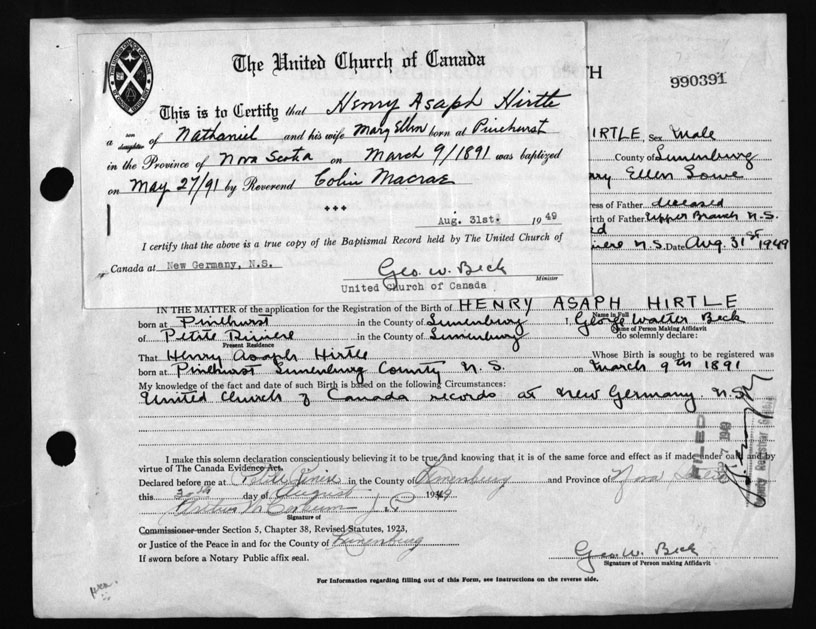 The United Church of Canada
H
990391
This is to Certify that Henry Asaph Hirtle
a son daughter of Nathaniel and his wife Mary Ellen born at Pinehurst
in the Province of Nova Scotia on March 9/1891 was baptized
on May 27/91 by Reverend Colin Macrae
Aug. 31st. 1949
I certify that the above is a true copy of the Baptismal Record held by The United Church of
Canada at New Germany, N.S.
Geo. W. Beck
Minister
United Church of Canada
HIRTLE, Sex Male
County of Lunenburg
ary Ellen Lowe
ress of Father deceased
irth of Father Upper Branch N.S.
ed
iere N.S. Date Aug. 31st 1949
IN THE MATTER of the application for the Registration of the Birth of HENRY ASAPH HIRTLE
Name in Full
born at Pinehurst in the County of Lunenburg I, George Walter Beck
Name of Person Making Affidavit
of Petite Riviere in the County of Lunenburg do solemnly declare:
Present Residence
That Henry Asaph Hirtle Whose Birth is sought to be registered was
born at Pinehurst Lunenburg County N.S. on March 9th 1891
My knowledge of the fact and date of such Birth is based on the following Circumstances:
United Church of Canada records at New Germany N.S.
FILED
7 1949
County Registrar
I make this solemn declaration conscientiously believing it to be true, and knowing that it is of the same force and effect as if made under oath and by
virtue of The Canada Evidence Act.
Declared before me at Petite Riviere in the County of Lunenburg and Province of Nova Scotia
this 30th day of August 1949
Signature of
Commissioner under Section 5, Chapter 38, Revised Statutes, 1923,
or Justice of the Peace in and for the County of Lunenburg
If sworn before a Notary Public affix seal.
Geo. W. Beck
Signature of Person making Affidavit
For Information regarding filling out of this Form, see Instructions on the reverse side.